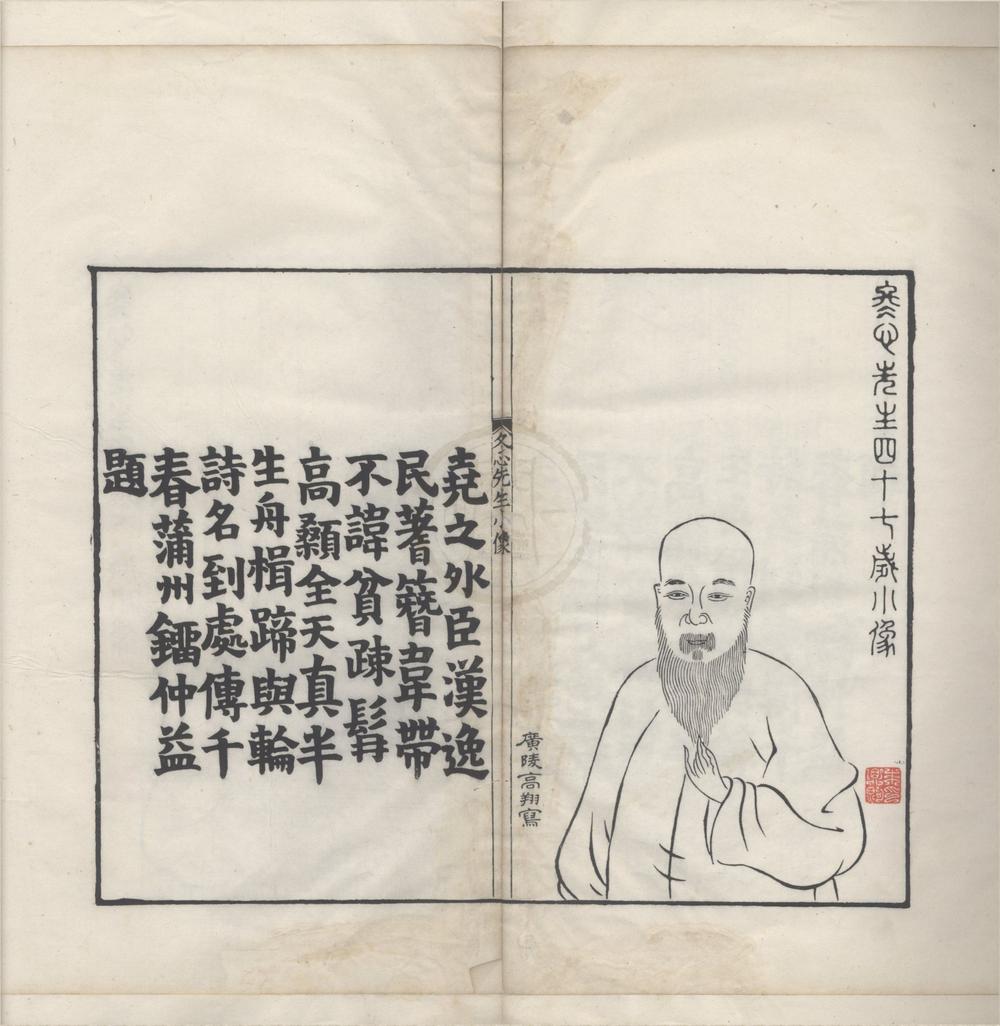 冬心先生四十七歲小像
廣陵高翔寫
冬心先生小像
堯之外臣漢逸
民蓍簪韋帶
不諱貧疎髯
高顙全天真半
生舟楫蹄與輪
詩名到處傳千
春蒲州鐂仲益
題